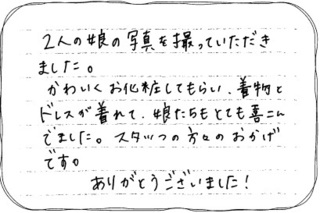 2人の娘の写真を撮っていただき
ました。
かわいくお化粧してもらい、着物と
ドレスが着れて、娘たちもとても喜こん
でました。スタッフの方々のおかげ
です。
ありがとうございました!